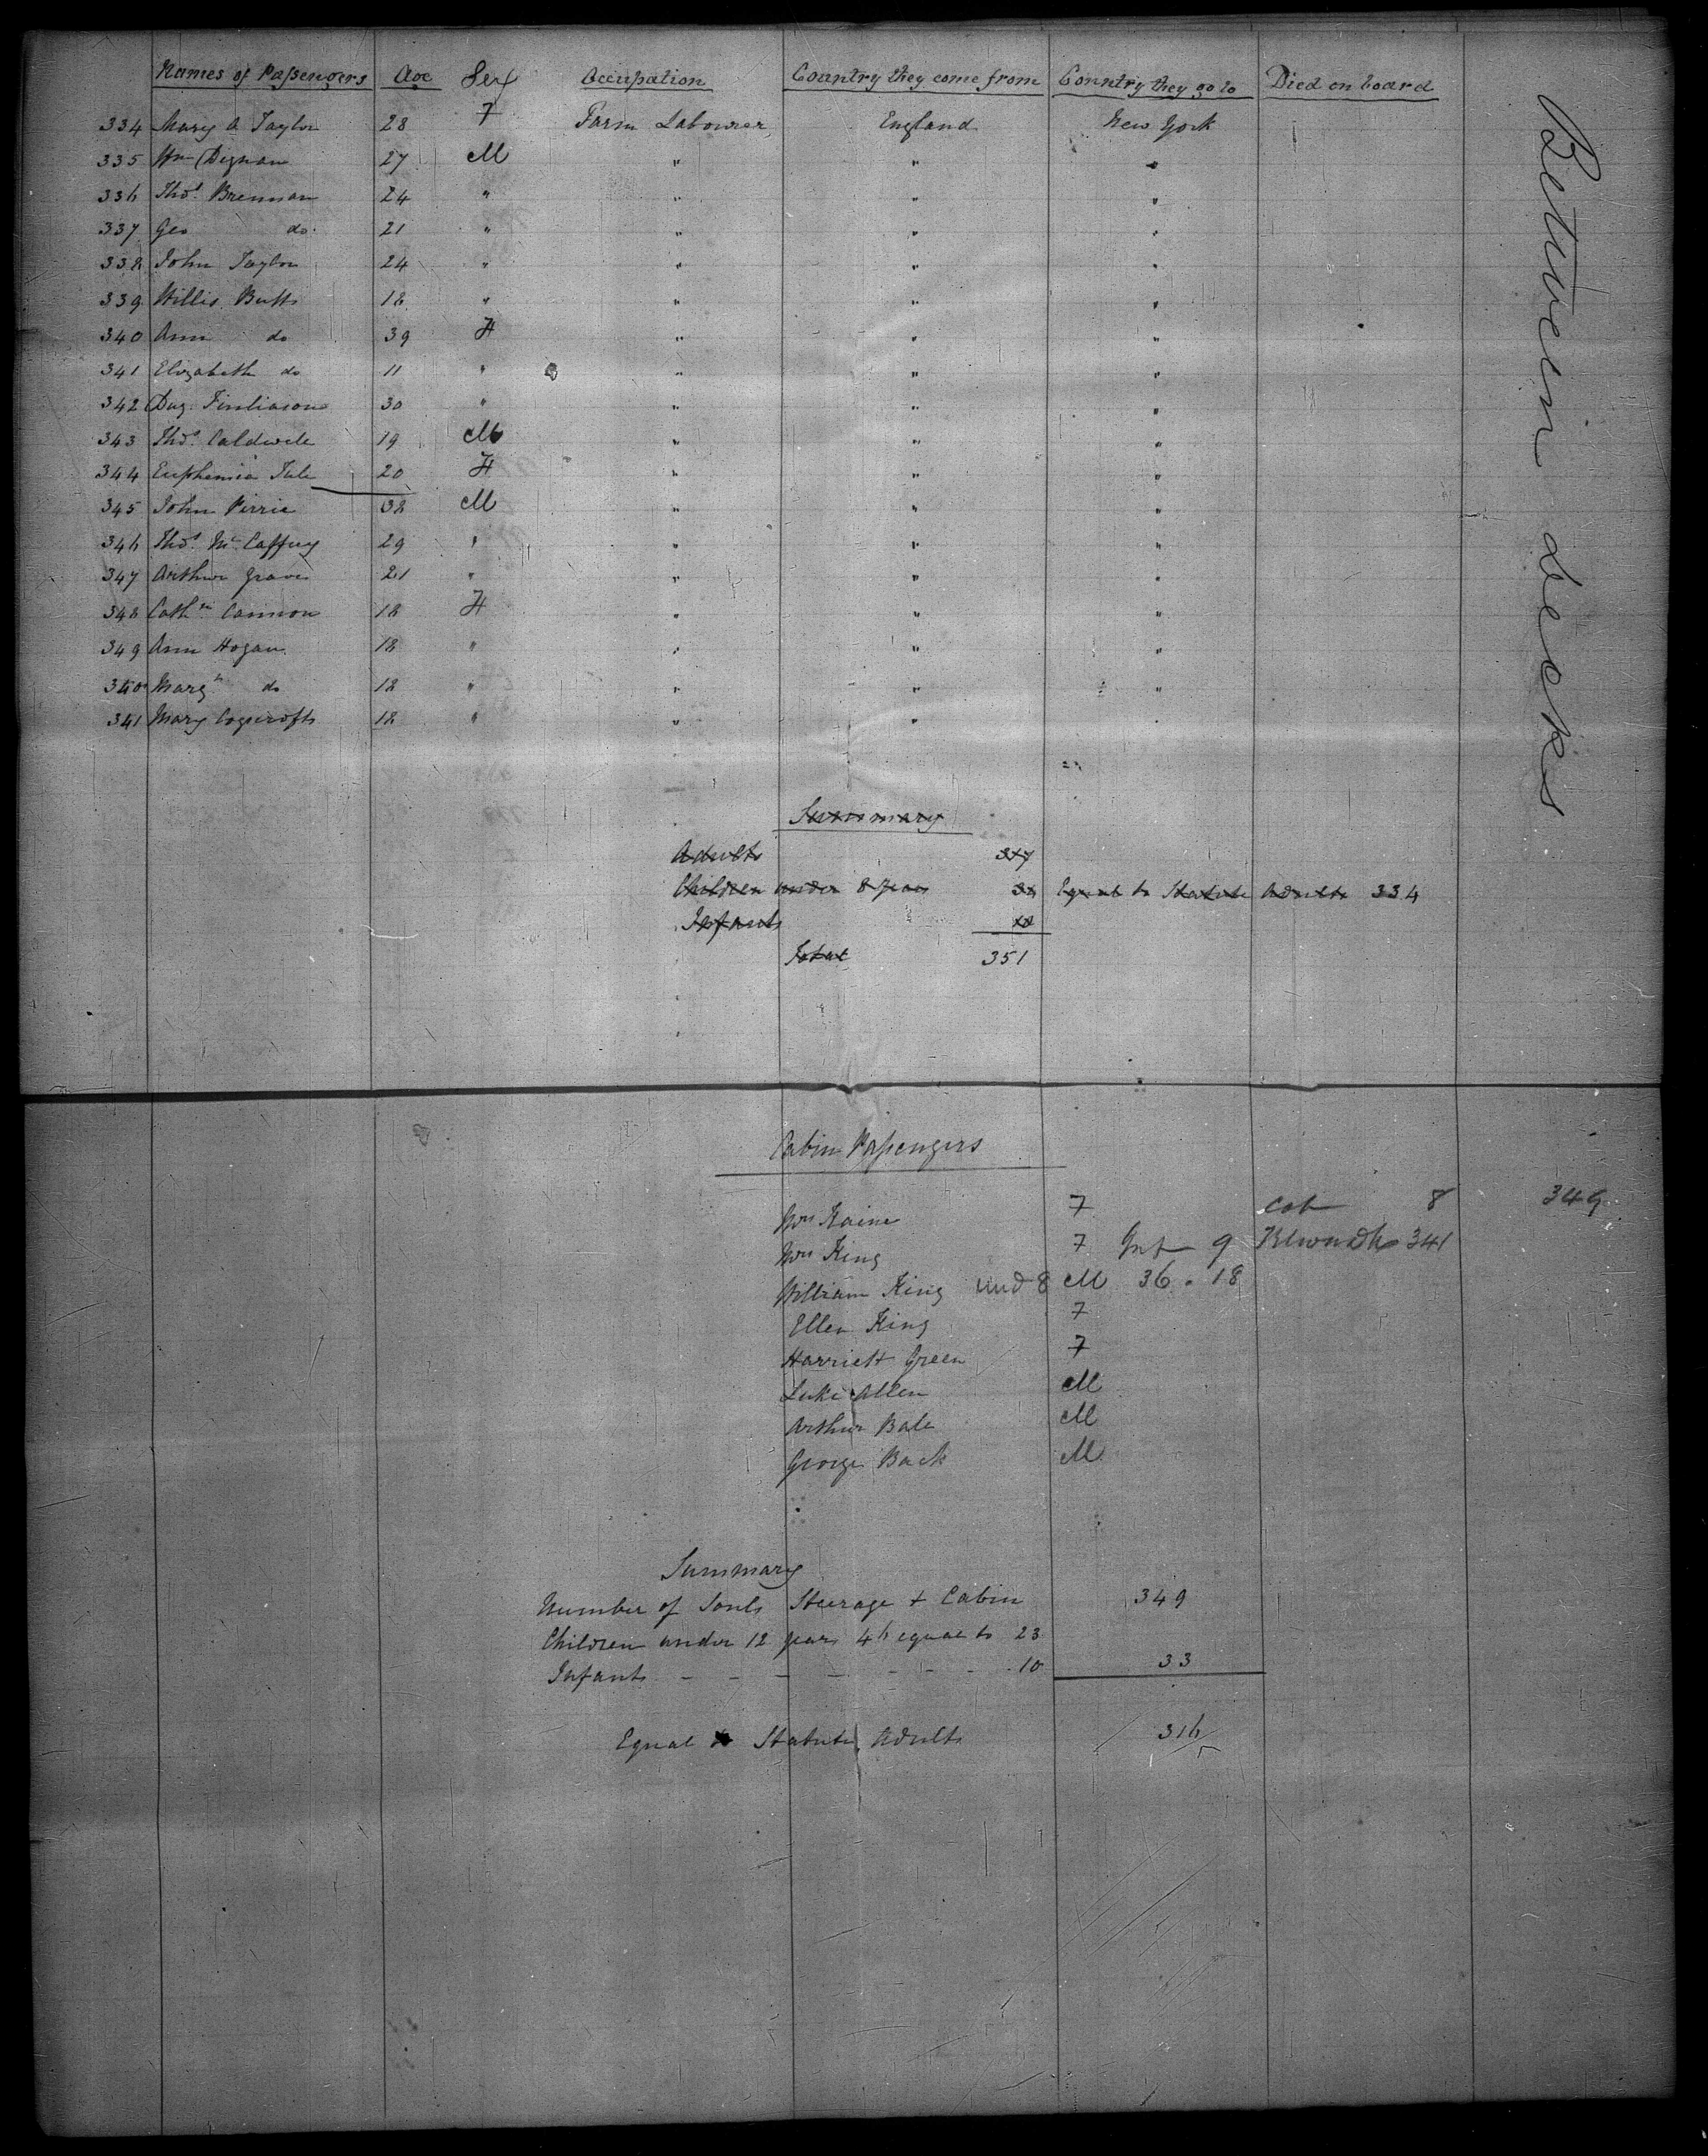 Names of Passengers Age Sex Occupation Country they come from Country they go to Died on board
334 Mary A Taylor 28 F Farm Labourer England New York
335 Wm Dignan 27 M " " "
336 Thos. Brennan 24 " " " "
337 Geo do. 21 " " " "
338 John Taylor 24 " " " "
339 Willis Butts 18 " " " "
340 Ann do 39 F " " "
341 Elizabeth do 11 " " " "
342 30 " " " "
343 Thos. Caldwell 19 M " " "
344 Euphemia 20 F " " "
345 John Pirrie 38 M " " "
346 Thos. Mc Caffrey 29 " " " "
347 Arthur Graves 21 " " " "
348 Cathn Cannon 18 F " " "
349 Ann Hogan 18 " " " "
340 Margt do 18 " " " "
341 Mary 18 " " " "
Between decks
Summary
Adults 317
Children under 8 years Equal to Statute Adults 334
Infants
Total 351
Cabin Passengers
Mrs Kaine F Cab 8 349
Mrs King F Inf 9 341
William King und 8 M 36 . 18
Ellen King F
Harriett Green F
Luke Allen M
Arthur Bale M
George Back M
Summary
Number of Souls Steerage + Cabin 349
Children under 12 years 46 equal to 23
Infants - - - - - - - 10 33
Equal to Statute Adults 316